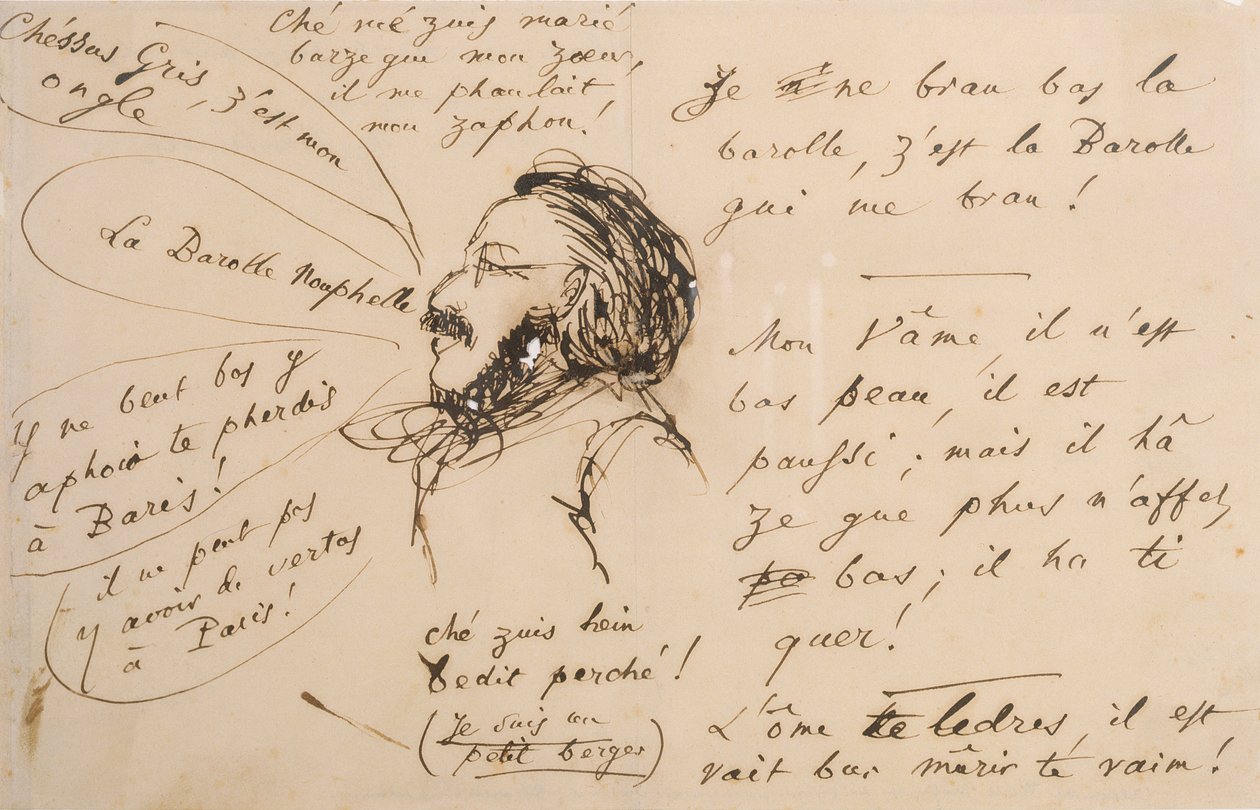 Chéssus Gris, z'est mon
ongle
Ché mé zuis marié
barzegue mon zoeur,
il me phaulait
mon zaphon!
La Barolle Nouphelle
Y ne beut bas y
aphoir te pherdis
à Baris!
il ne peut pas
y avoir de vertas
à Paris!
ché zuis hein
bedit perché!
(je suis un
petit berger)
Je ne brau bas la
barolle, z'est la Barolle
gui me brau!
Mon Vâme, il n'est
bas peau, il est
paussi; mais il hâ
ze gue phus n'affez
bas; il ha ti
quer!
L'ôme te ledres, il est
vait bur mûrir té vaim!